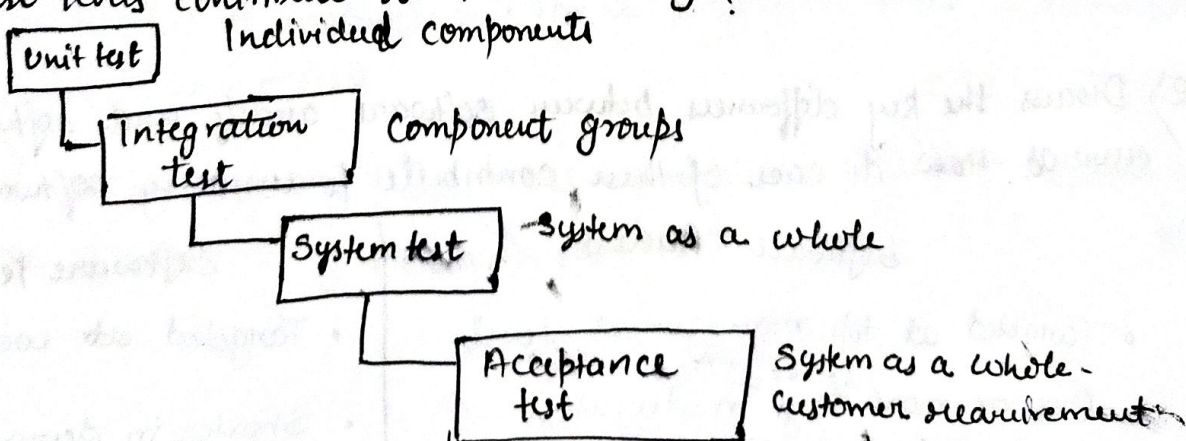 Individual components
Unit test
Integration
test
Component groups
System test
System as a whole
Acceptance
test
System as a whole -
customer requirement